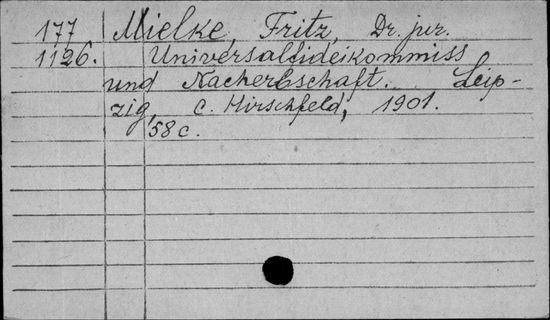 177 Mielke, Fritz, Dr. jur.
1126. Universalfideikommiss
und Nacherbschaft. Leip-
zig, C. Hirschfeld, 1901.
58 c.